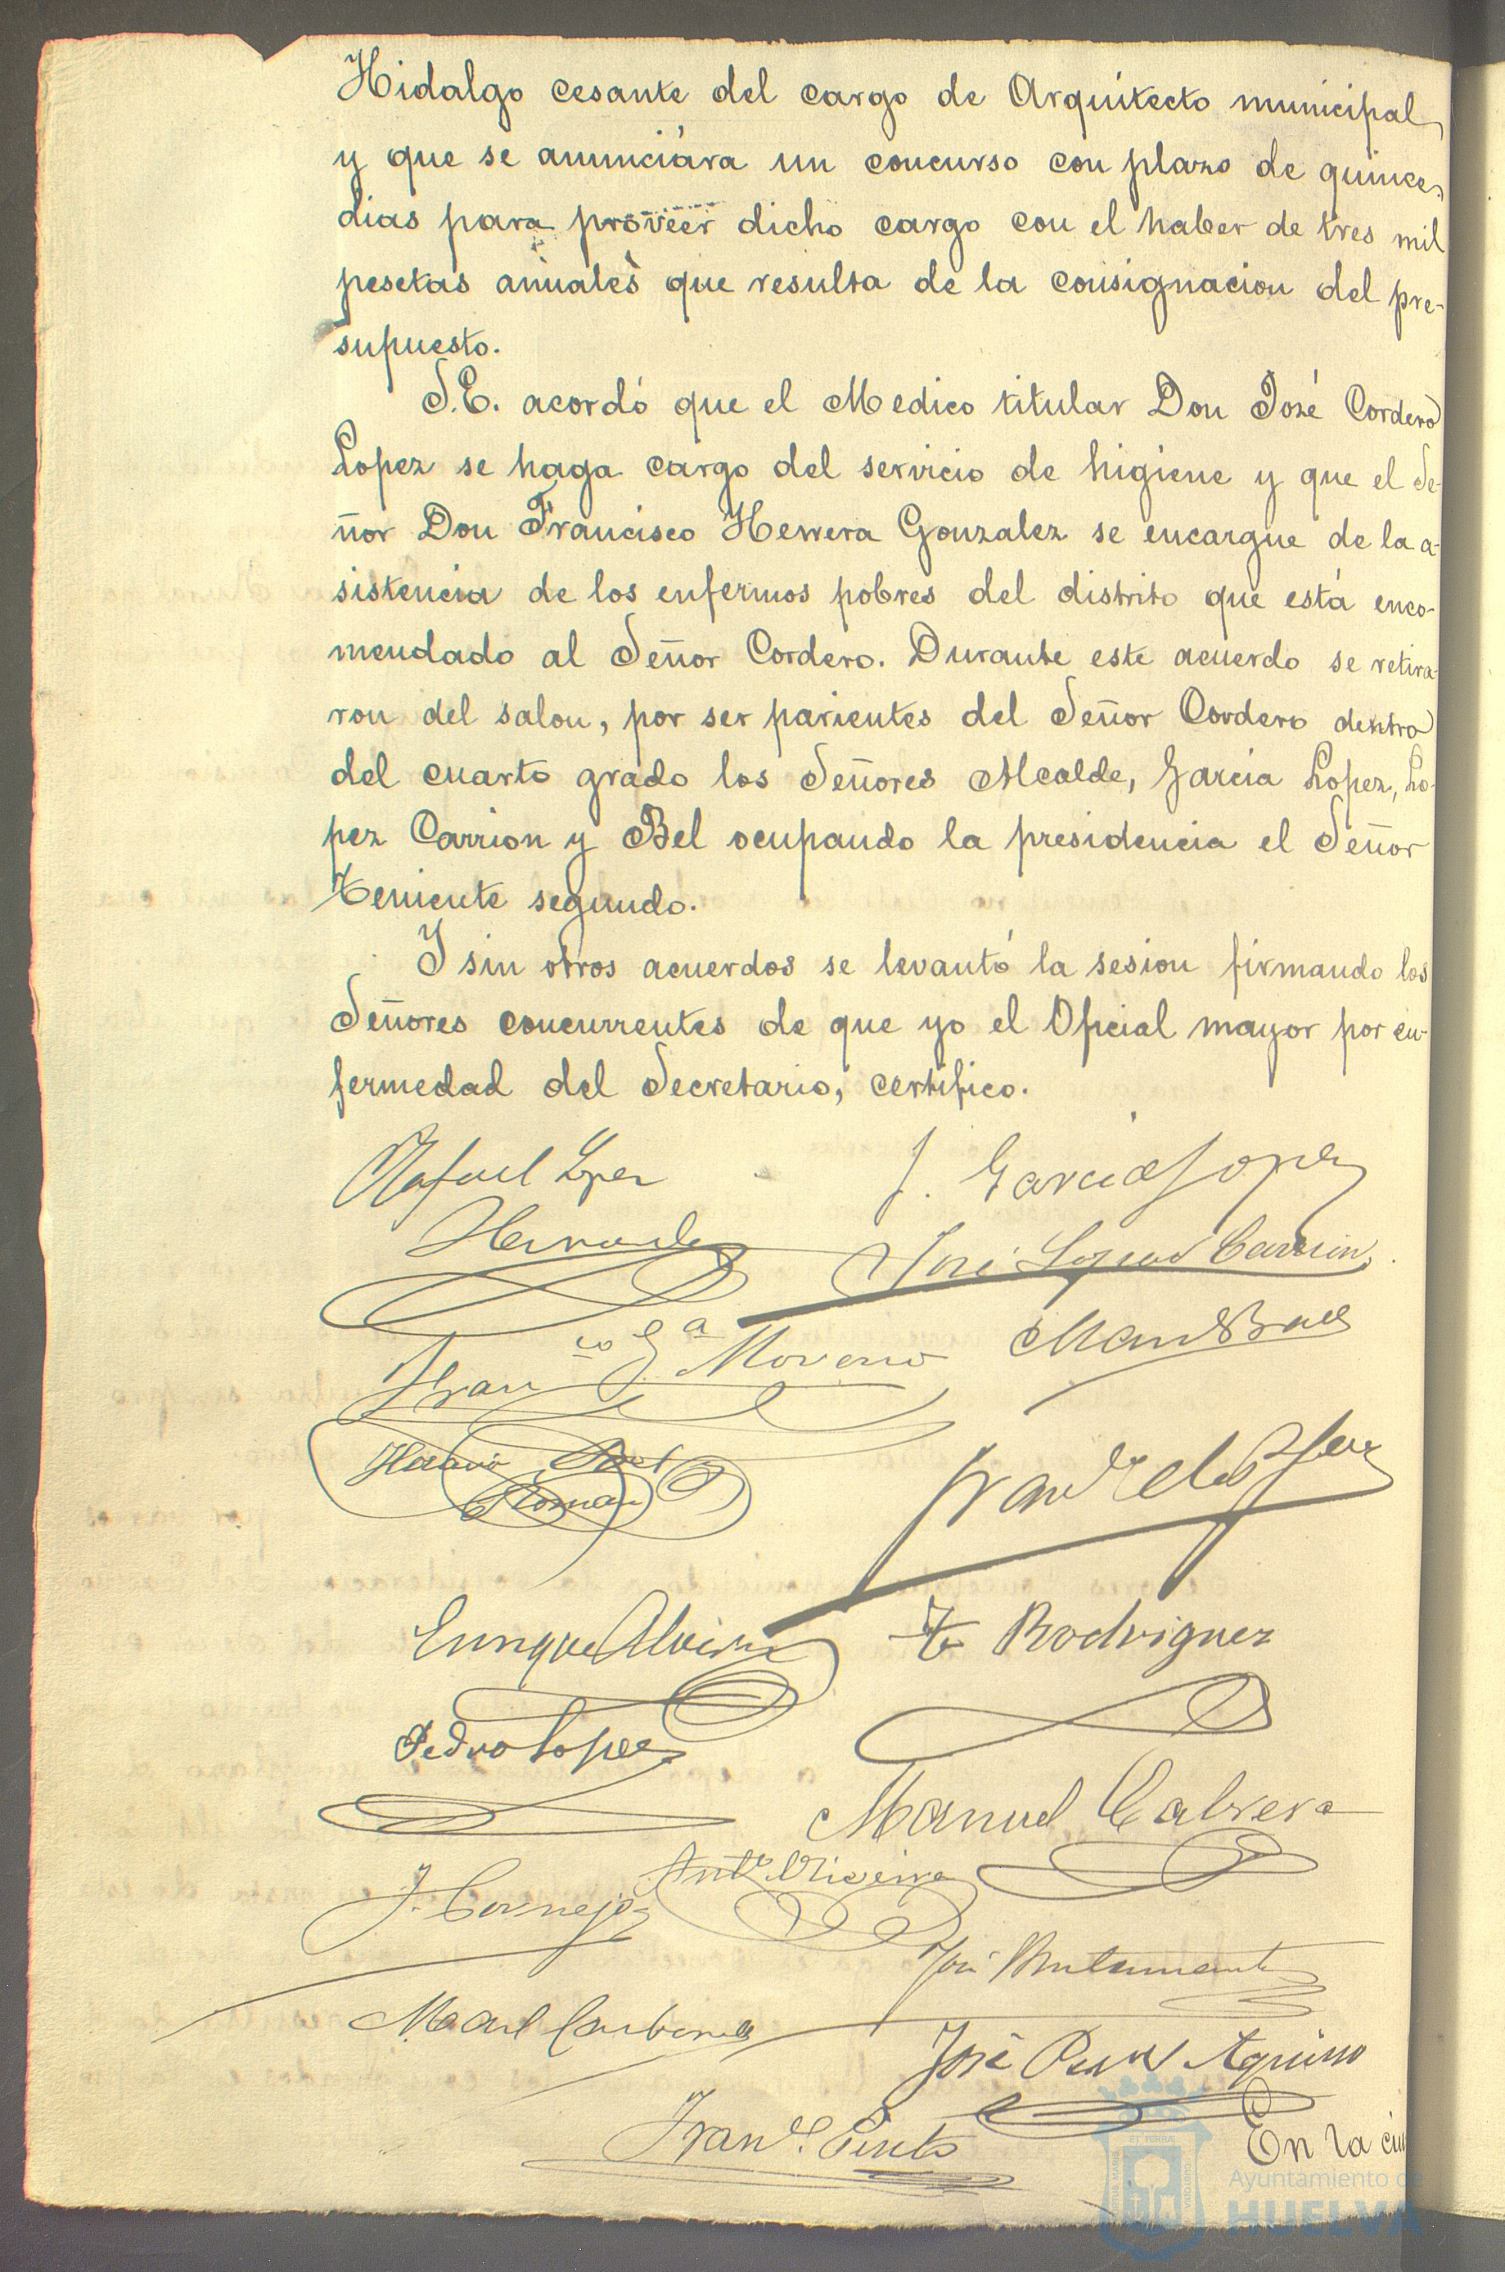 Hidalgo cesante del cargo de Arquitecto municipal,
y que se anunciára un concurso con plazo de quince
dias para proveer dicho cargo con el haber de tres mil
pesetas anuales que resulta de la consignacion del pre-
supuesto.
S.E. acordó que el Medico titular Don José Cordero
Lopez se haga cargo del servicio de higiene y que el Se-
ñor Don Francisco Herrera Gonzalez se encargue de la a-
sistencia de los enfermos pobres del distrito que está enco-
mendado al Señor Cordero. Durante este acuerdo se retira-
ron del salon, por ser parientes del Señor Cordero dentro
del cuarto grado los Señores Alcalde, Garcia Lopez, Lo-
pez Carrion y Bel ocupando la presidencia el Señor
Teniente segundo.
Y sin otros acuerdos se levantó la sesion firmando los
Señores concurrentes de que yo el Oficial mayor por en-
fermedad del Secretario, certifico.
Rafael Lopez
J. Garcia Lopez
José Lopez Carrion
Fran co G a Moreno
Horacio Bel
Roman
Enrique
F Rodriguez
Pedro Lopez
Manuel Cabrera
J. Cornejo
José Bustamante
José Aquino
Fran co Pinto
En la ciu
Ayuntamiento de
HUELVA